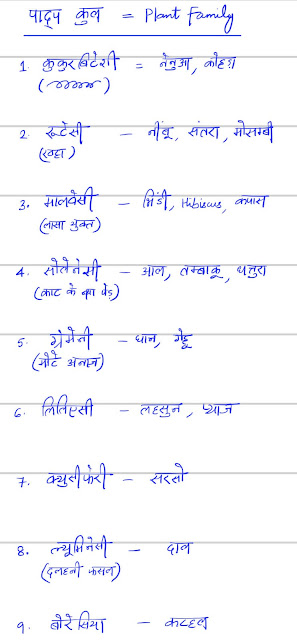 पादप कुल = Plant Family
1. कुकुरबिटेसी = नेनुआ, कोहड़ा
2. रूटेसी - नींबू, संतरा, मोसम्बी
(खट्टा)
3. मालवेसी - भिंडी, Hibiscus, कपास
(लासा युक्त)
4. सोलेनेसी - आलू, तम्बाकू, धतुरा
(काट के बच पेड़)
5. ग्रेमेनी - धान, गेहूं
(मोटे अनाज)
6. लिलिएसी - लहसुन, प्याज
7. क्रुसीफेरी - सरसो
8. ल्यूमिनेसी - दाल
(दलहनी फसल)
9. बोरेसिया - कटहल